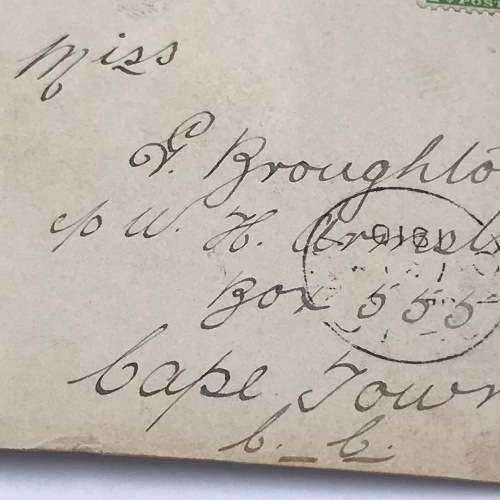 POST
Miss
G. Broughto
c/o W. H.
Box 555
Cape Town
C. C.